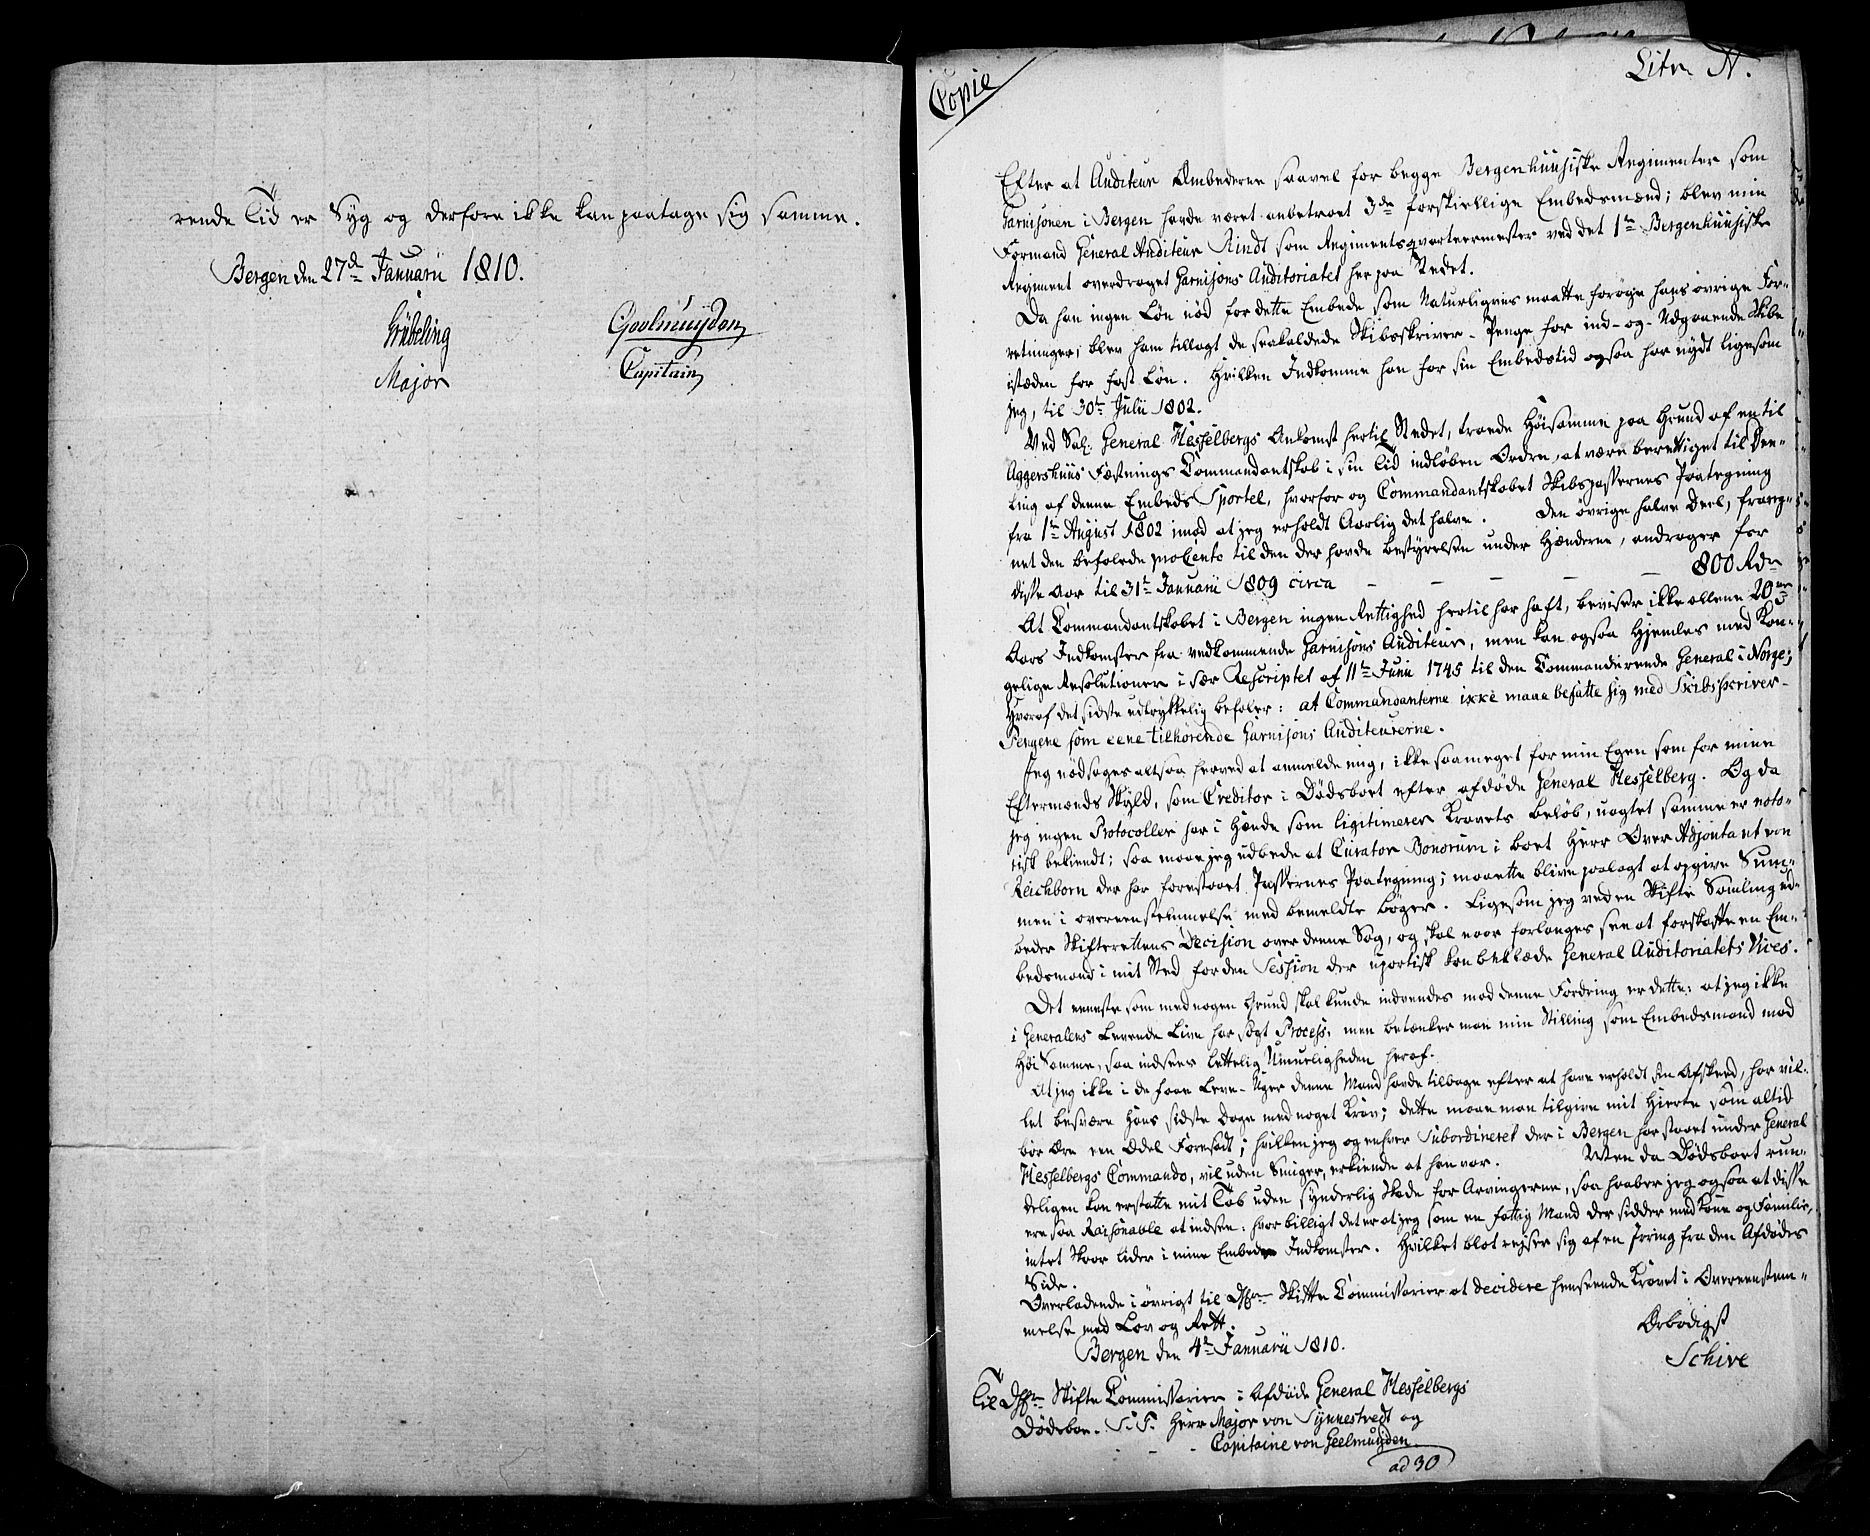 rende Tid er Syg og derfore ikke kan paatage sig samme.
Bergen den 27de Januarii 1810.
Grübeling
Major
Geelmuyden
Capitain
Copie
Litr. N.
Efter at Auditeur Embederne saavel for begge Bergenhuusiske Regimenter som
Garnisonen i Bergen havde været anbetroet 3de forskiellige Embedsmænd; blev min
Formand General Auditeur Rindt som Regimentsqvarteermester ved det 1te Bergenhuusiske
Regiment overdraget Garnisons Auditoriatet her paa Stedet.
Da han ingen Løn nød for dette Embede som Naturligviis maatte forøge hans øvrige For-
retninger; blev ham tillagt de saakaldede Skibsskriver-Penge for ind- og Udgaaende Skibe
istæden for fast Løn. Hvilken Indkomme han for sin Embedstid ogsaa har nydt ligesom
jeg, til 30te Julii 1802.
Ved Sal. General Hesselbergs Ankomst hertil Stedet, troede Høisamme paa Grund af en til
Aggershuus Fæstnings Commandantskab i sin Tid indløben Ordre, at være berettiget til Dee-
ling af denne Embeds Sportel, hvorfor og Commandantskabet Skibspassernes Paategning
fra 1te August 1802 imod at jeg erholdt Aarlig det halve. Den øvrige halve Deel, frareg-
net den befalede pro Cento til den der havde bestyrelsen under Hænderne, andrager for
disse Aar til 31te Januarii 1809 circa - - - - - 800 Rdr
At Commandantskabet i Bergen ingen Rettighed hertil har haft, beviser ikke allene 20
Aars Indkomster fra vedkommende Garnisons Auditeur, men kan ogsaa Hjemles med Kon-
gelige Resolutioner i sær Rescriptet af 11te Junii 1745 til den Commanderende General i Norge;
Hvoraf det sidste udtrykkelig befaler: at Commandanterne ikke maae befatte sig med Skibsskriver-
Pengene som eene tilhørende Garnisons Auditeurerne.
Jeg nødsages altsaa herved at anmelde mig, ikke saameget for min Egen som for mine
Eftermænds Skyld, som Creditor i Dødsboet efter afdøde General Hesselberg. Og da
jeg ingen Protocoller har i Hænde som ligitimerer Kravets Beløb, uagtet samme er noto-
risk bekiendt; saa maae jeg udbede at Curator Bonorum i boet Herr Over Adjoutant von
Reichborn der har forestaaet Passernes Paategning; maatte blive paalagt at opgive Sum-
men i overeenstemmelse med bemeldte bøger. Ligesom jeg ved en Skifte Samling ud-
beder Skifterettens Decision over denne Sag, og skal naar forlanges see at forskaffe en Em-
bedsmand i mit Sted for den Session der upartisk kan beklæde General Auditoriatets Vices.
Det eeneste som med nogen Grund skal kunde indvendes mod denne Fordring er dette: at jeg ikke
i Generalens Levende Live har søgt Process, men betænker man min Stilling som Embedsmand mod
Høi Samme, saa indsees lettelig Umueligheden heraf.
At jeg ikke i de faae Leve-Uger denne Mand havde tilbage efter at have erholdt sin Afskeed, har vil-
let besvære Hans sidste Dage med noget Krav; dette maae man tilgive mit Hjerte som altid
bør Ære een Ædel Foresadt; hvilken jeg og enhver Subordineret der i Bergen har staaet under General
Hesselbergs Commando, vil uden Smiger, erkiende at han var. Men da Dødsboet run-
deligen kan erstatte mit Tab uden synderlig Skade for Arvingerne, saa haaber jeg ogsaa at disse
ere saa Raisonable at indsee: hvor billigt det er at jeg som en fattig Mand der sidder med Kone og Familie,
intet Skaar lider i mine Embeds Indkomster. Hvilket blot rejser sig af en Irring fra den Afdødes
Side.
Overladende i øvrigt til DHrr Skifte Commissarier at decidere henseende Kravet i Overeenstem-
melse med Lov og Rett.
Bergen den 4de Januarii 1810.
Ærbødigst
Schive
Til DHrr Skifte Commissarier i Afdøde General Hesselbergs
Dødsboe. S. T. Herr Major von Synnestvedt og
- - - Capitaine von Geelmuyden.
ad 30